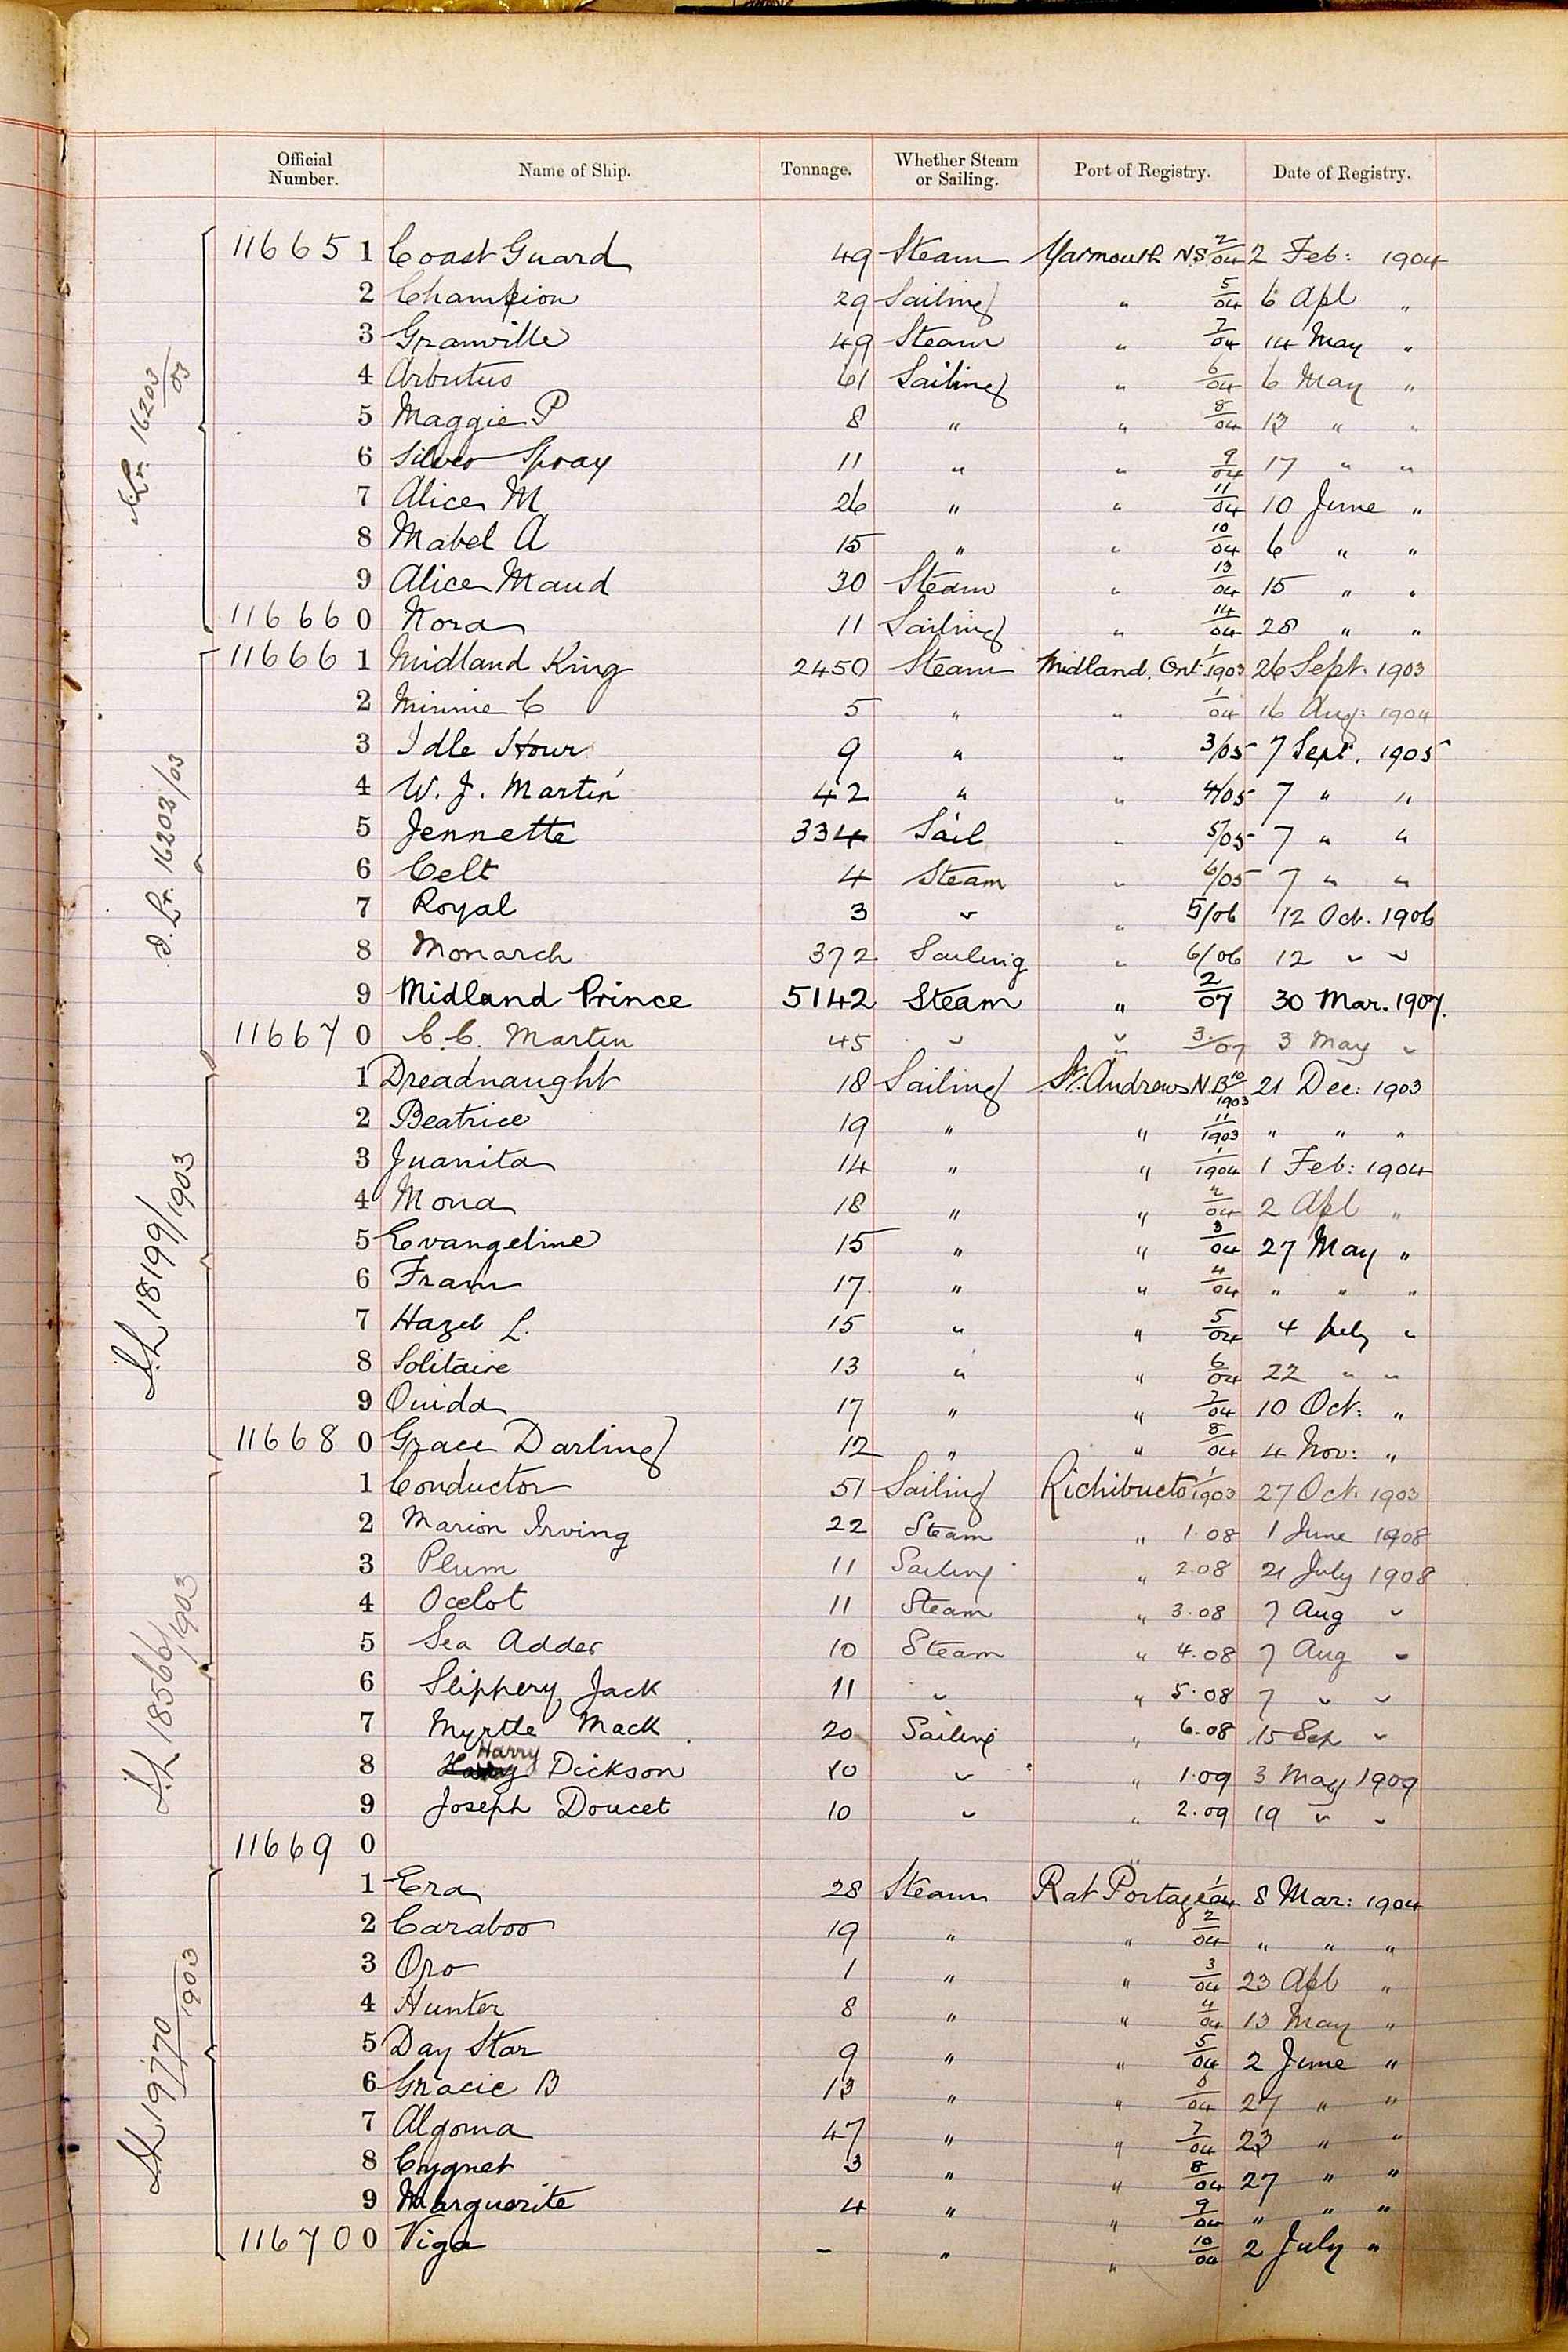 Official Number. Name of Ship. Tonnage. Whether Steam or Sailing. Port of Registry. Date of Registry.
116651 Coast Guard 49 Steam Yarmouth N.S. 2/04 2 Feb: 1904
2 Champion 29 Sailing " 5/04 6 Apl "
3 Granville 49 Steam " 7/04 14 May "
4 Arbutus 61 Sailing " 6/04 6 May "
5 Maggie P 8 " " 8/04 13 " "
6 Silver Spray 11 " " 9/04 17 " "
7 Alice M 26 " " 11/04 10 June "
8 Mabel A 15 " " 10/04 6 " "
9 Alice Maud 30 Steam " 13/04 15 " "
116660 Nora 11 Sailing " 14/04 28 " "
16203/03
116661 Midland King 2450 Steam Midland, Ont. 1/1903 26 Sept. 1903
2 Minnie C 5 " " 1/04 16 Aug: 1904
3 Idle Hour 9 " " 3/05 7 Sept. 1905
4 W. J. Martin 42 " " 4/05 7 " "
5 Jennette 334 Sail " 5/05 7 " "
6 Celt 4 Steam " 6/05 7 " "
7 Royal 3 " " 5/06 12 Oct. 1906
8 Monarch 372 Sailing " 6/06 12 " "
9 Midland Prince 5142 Steam " 2/07 30 Mar. 1907.
116670 C. C. Martin 45 " " 3/07 3 May "
16202/03
1 Dreadnaught 18 Sailing St. Andrews N.B 10/1903 21 Dec: 1903
2 Beatrice 19 " " 11/1903 " " "
3 Juanita 14 " " 1/1904 1 Feb: 1904
4 Mona 18 " " 2/04 2 Apl "
5 Evangeline 15 " " 3/04 27 May "
6 Fram 17 " " 4/04 " " "
7 Hazel L. 15 " " 5/04 4 July "
8 Solitaire 13 " " 6/04 22 " "
9 Ouida 17 " " 7/04 10 Oct: "
116680 Grace Darling 12 " " 8/04 4 Nov: "
18199/1903
1 Conductor 51 Sailing Richibucto 1/1903 27 Oct. 1903
2 Marion Irving 22 Steam " 1.08 1 June 1908
3 Plum 11 Sailing " 2.08 21 July 1908
4 Ocelot 11 Steam " 3.08 7 Aug "
5 Sea Adder 10 Steam " 4.08 7 Aug "
6 Slippery Jack 11 " " 5.08 7 " "
7 Myrtle Mack 20 Sailing " 6.08 15 Sep "
8 Harry Dickson 10 " " 1.09 3 May 1909
9 Joseph Doucet 10 " " 2.09 19 " "
116690
18566/1903
1 Era 28 Steam Rat Portage 1/04 8 Mar: 1904
2 Caraboo 19 " " 2/04 " " "
3 Oro 1 " " 3/04 23 Apl "
4 Hunter 8 " " 4/04 13 May "
5 Day Star 9 " " 5/04 2 June "
6 Gracie B 13 " " 6/04 27 " "
7 Algoma 47 " " 7/04 23 " "
8 Cygnet 3 " " 8/04 27 " "
9 Marguerite 4 " " 9/04 " " "
116700 Viga - " " 10/04 2 July "
19770/1903